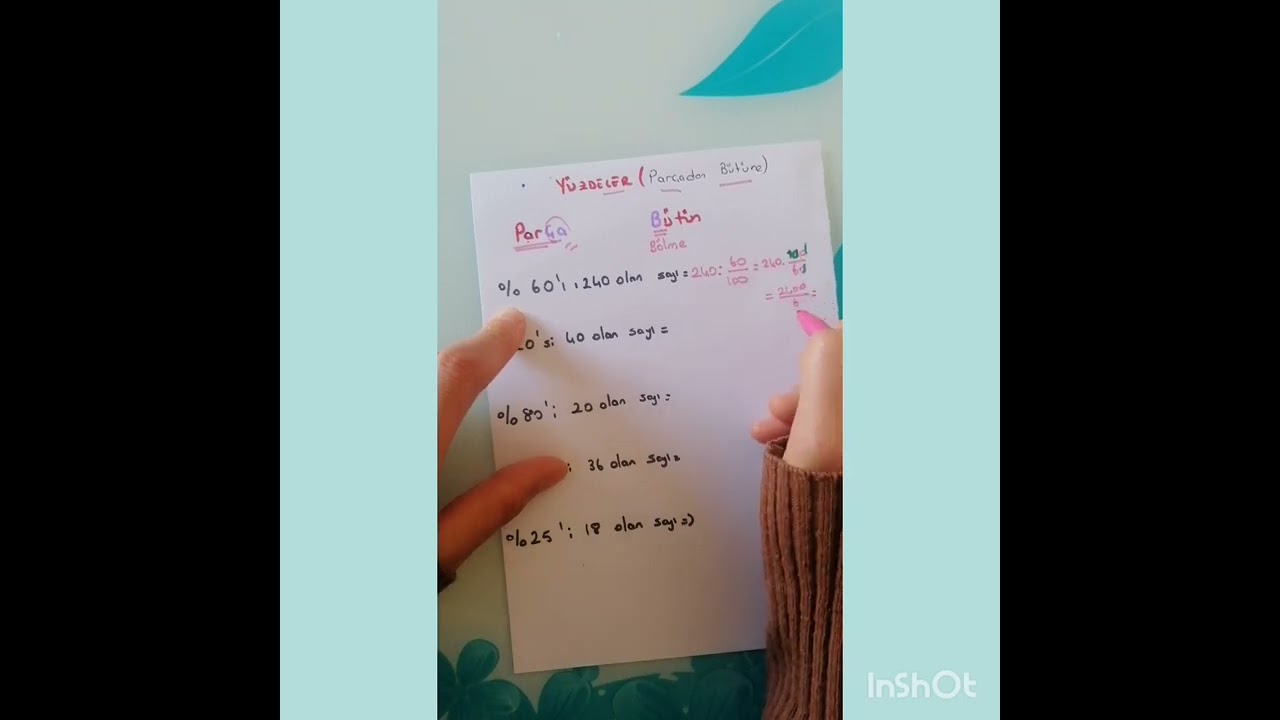 YÜZDELER (Parçadan Bütüne)
Parça Bütün
Bölme
% 60'ı 240 olan sayı = 240 : 60/100 = 240 .
= 2400/6 =
20'si 40 olan sayı =
%80'i 20 olan sayı =
36 olan sayı =
%25'i 18 olan sayı =)
InShOt